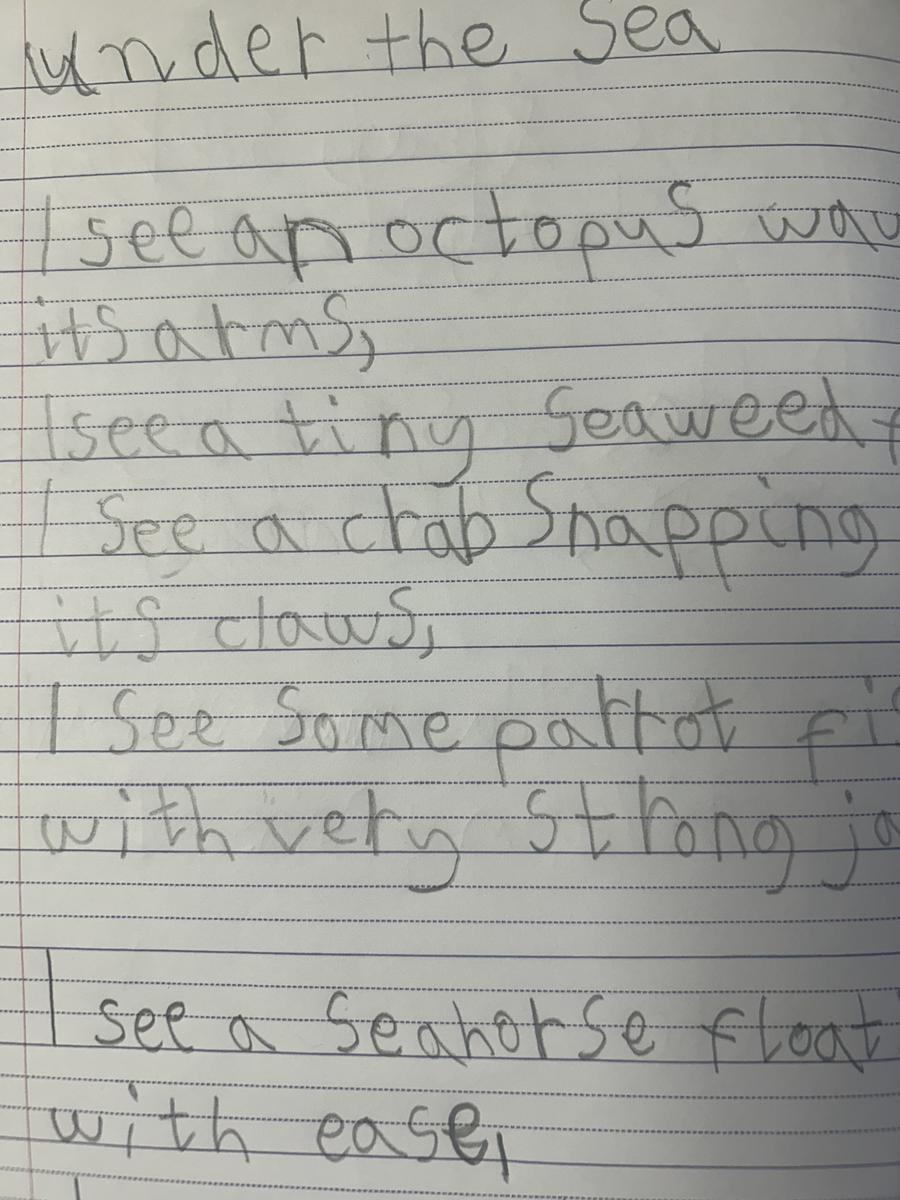 Under the Sea
I see an octopus
its arms,
I see a tiny seaweed
I see a crab Snapping
its claws,
I see some parrot
with very strong
I see a seahorse float
with ease,